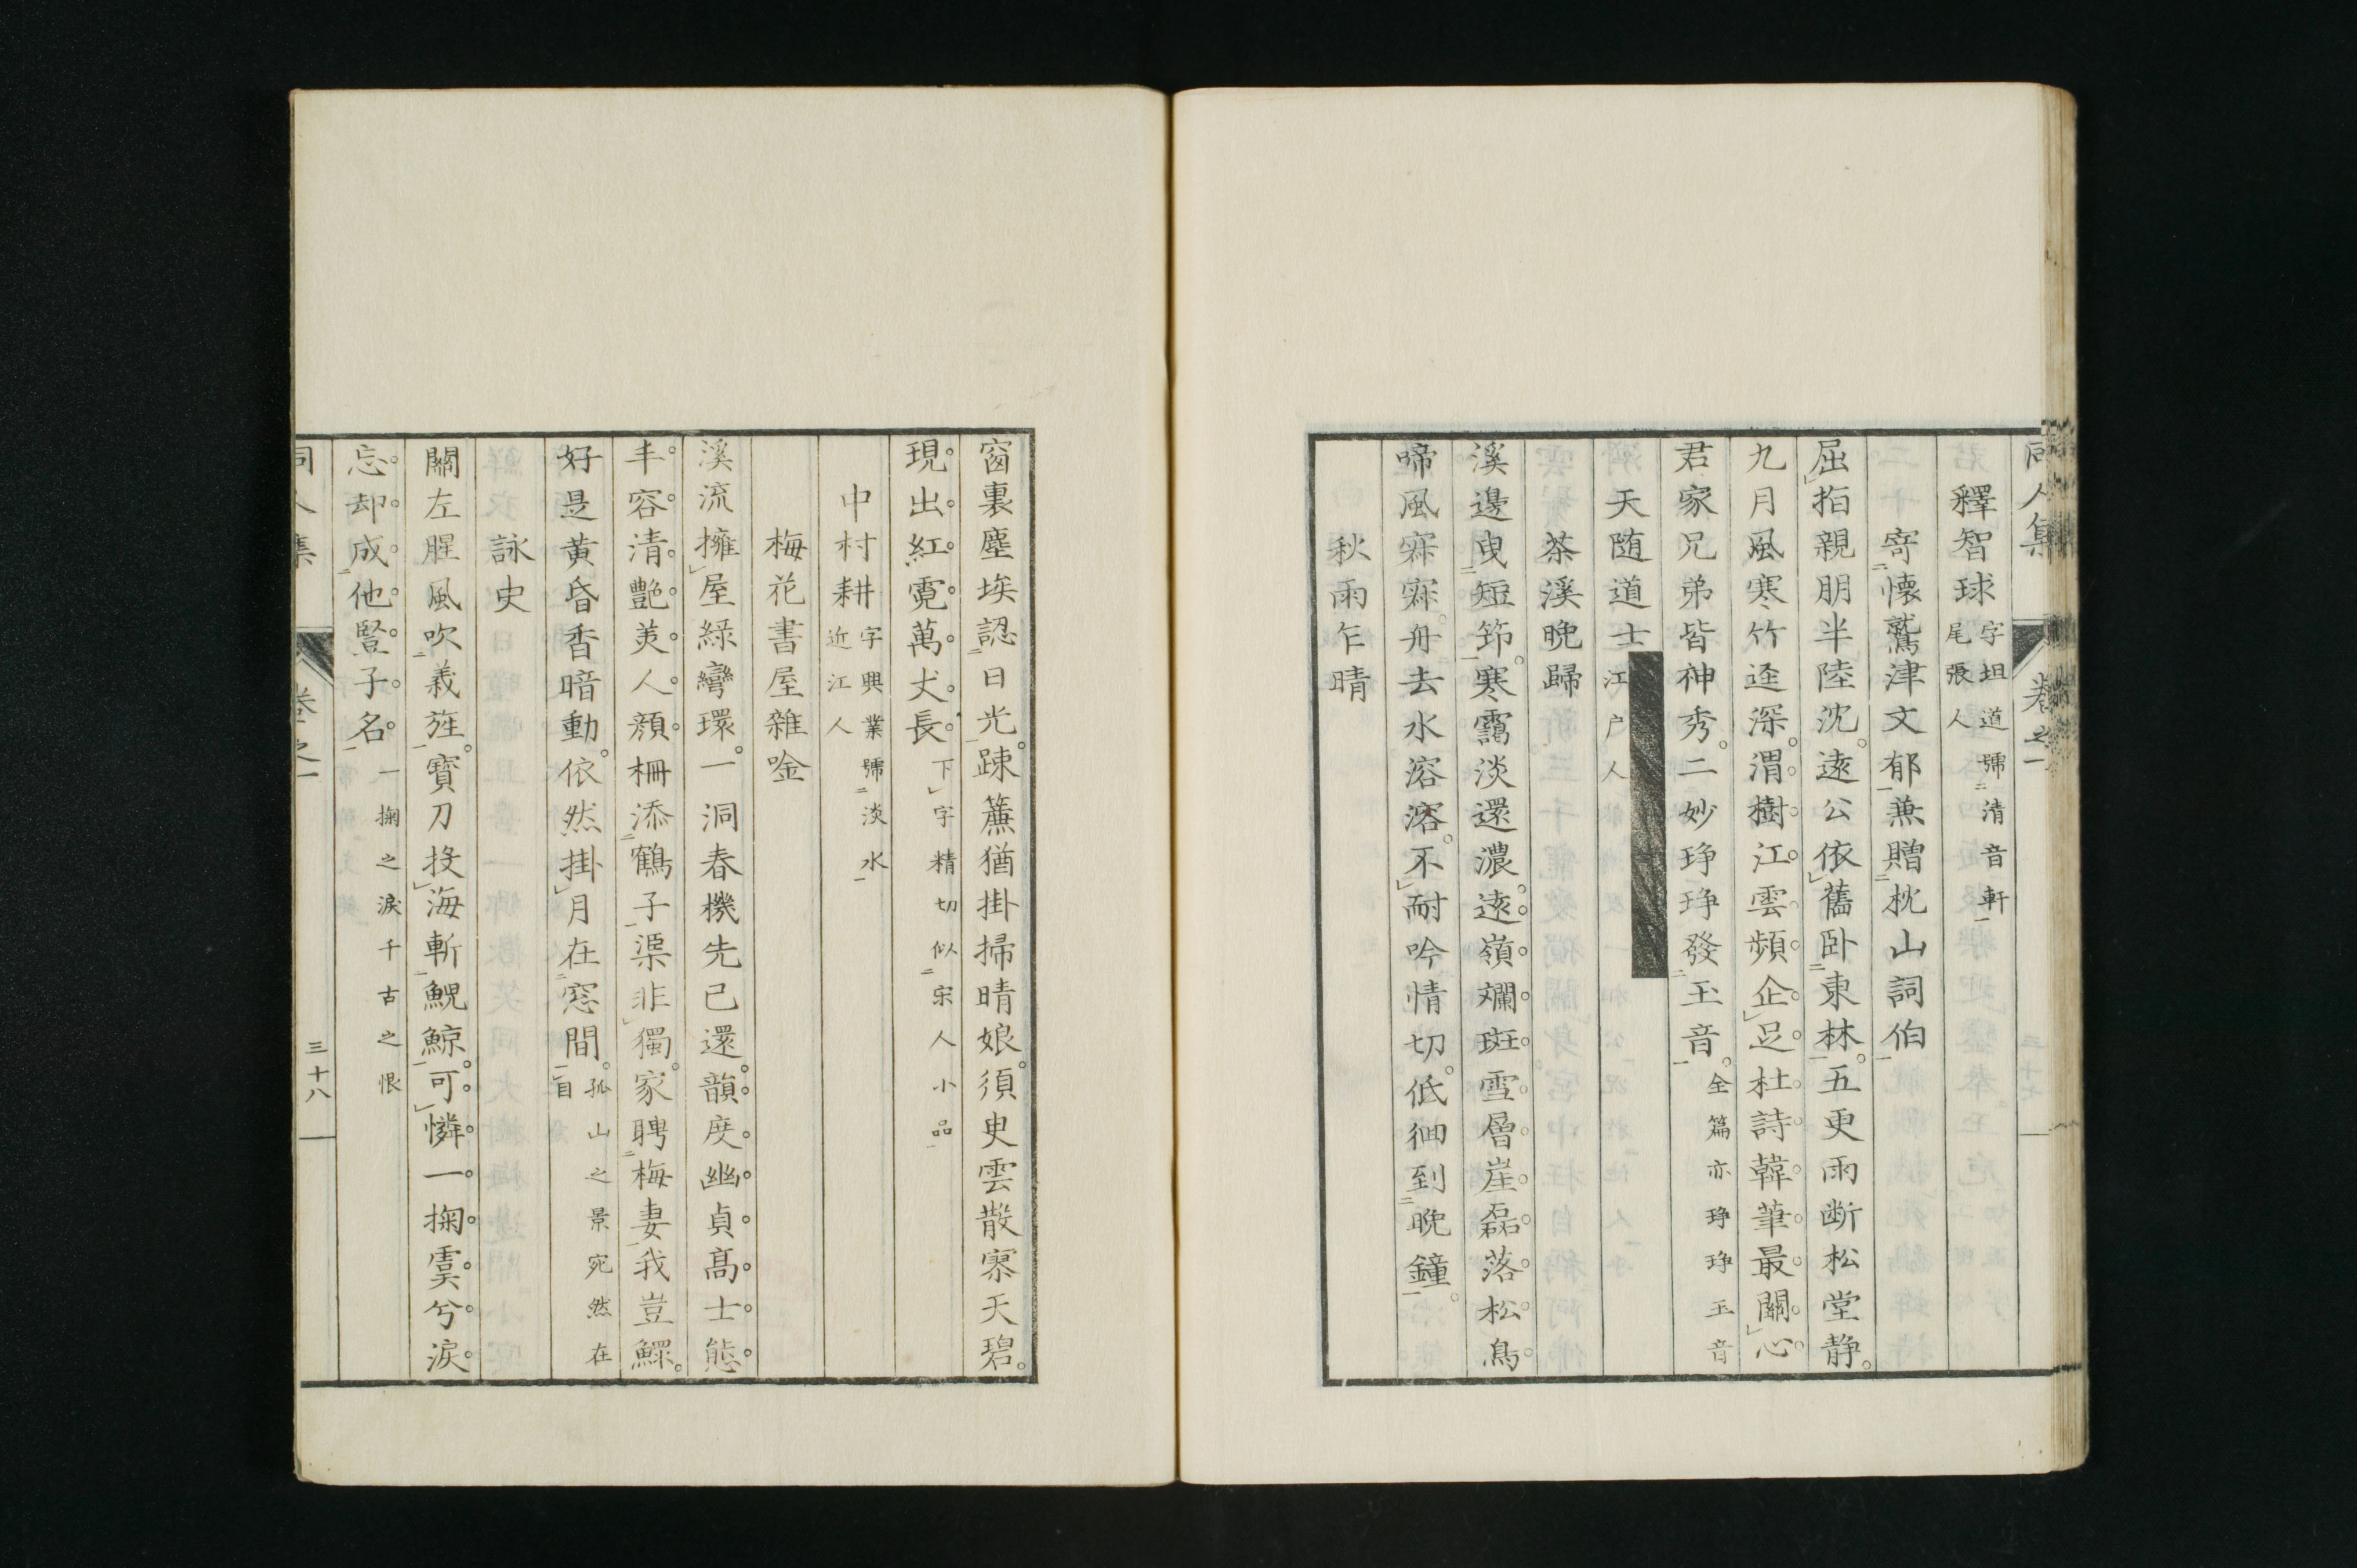 同人集 卷之一
釋智球 字坦道號清音軒
尾張人
寄懷鷲津文郁兼贈枕山詞伯
屈指親朋半陸沈遠公依舊卧東林五更雨断松堂静
九月風寒竹逕深渭樹江雲頻企足杜詩韓筆最關心
君家兄弟皆神秀二妙琤琤發玉音 全篇亦琤琤玉音
天随道士 江户人
茶溪晩歸
溪邊曳短筇寒靄淡還濃遠嶺斕斑雪層崖磊落松鳥
啼風寂寂舟去水溶溶不耐吟情切低徊到晩鐘
秋雨乍晴
窗裏塵埃認日光踈簾猶掛掃晴娘須臾雲散寥天碧
現出紅霓萬丈長 下字精切似宋人小品
中村耕 字興業號淡水
近江人
梅花書屋雜唫
溪流擁屋綠彎環一洞春機先已還韻度幽貞髙士態
丰容清艷美人顔柵添鶴子渠非獨家聘梅妻我豈鰥
好是黄昏香暗動依然掛月在窓間 孤山之景宛然在
目
詠史
關左腥風吹義旌寶刀投海斬鯢鯨可憐一掬虞兮淚
忘却成他豎子名 一掬之淚千古之恨
同人集 卷之一 三十八